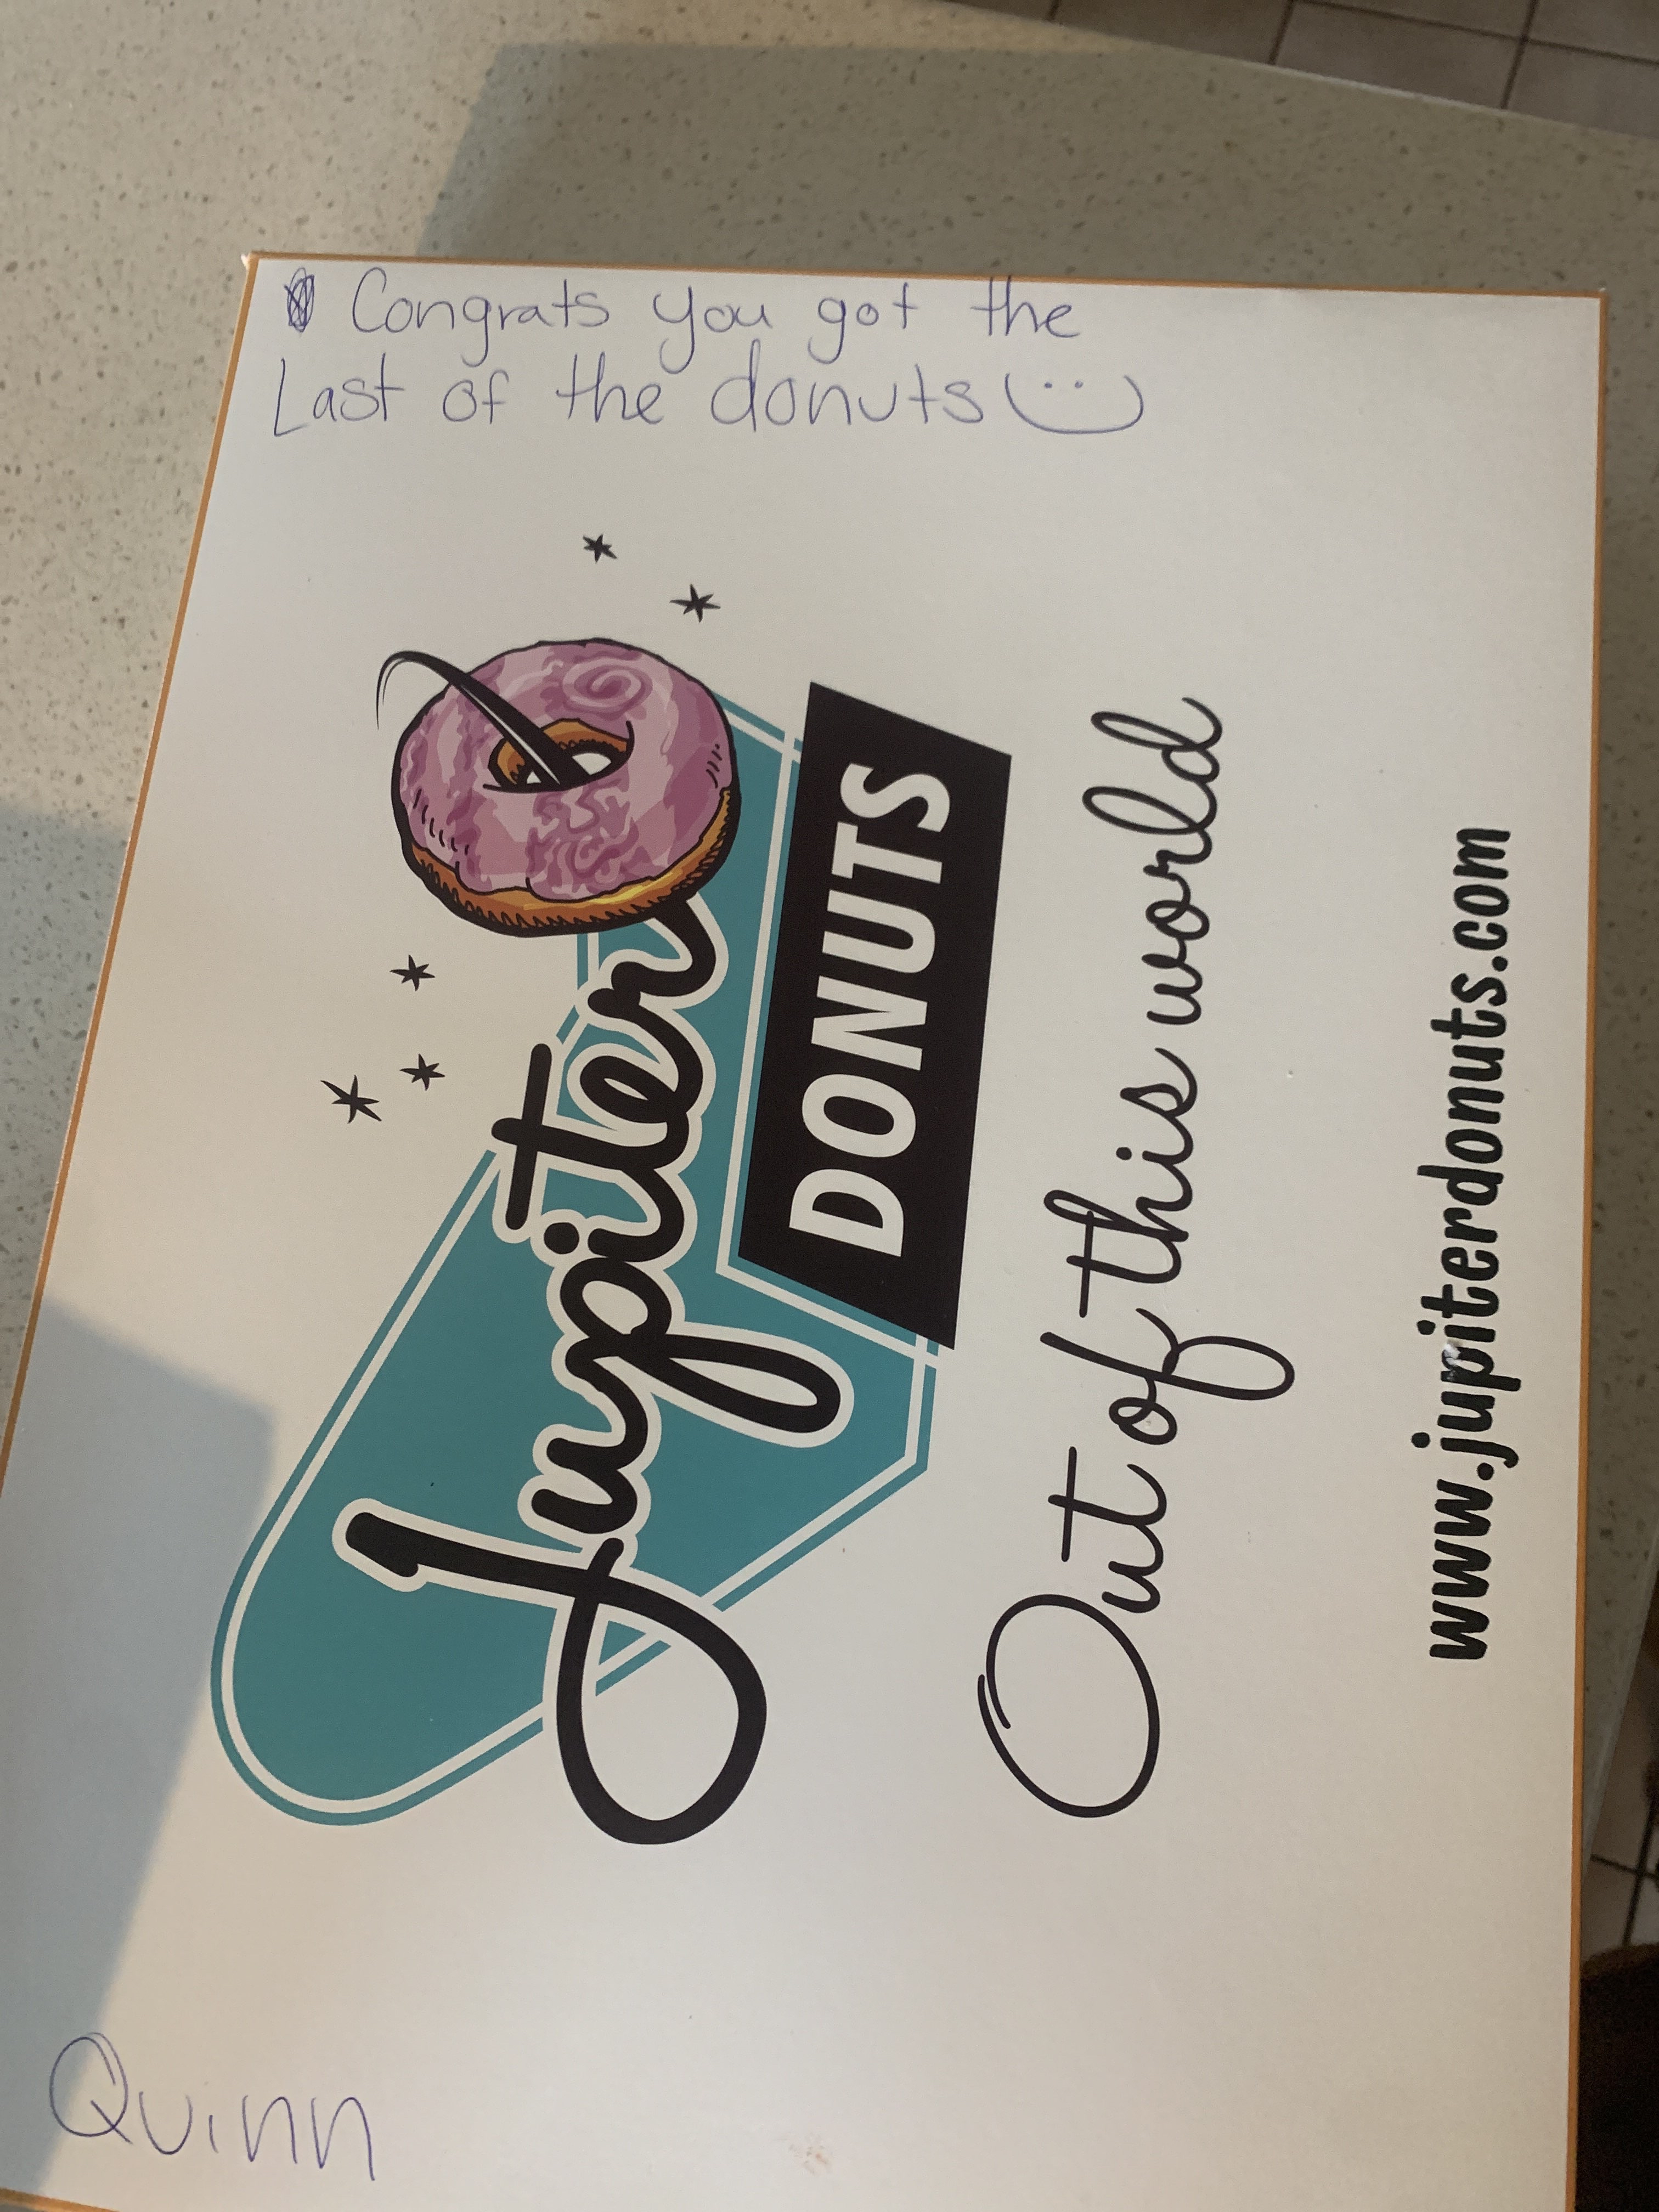 Congrats you got the
Last of the donuts
Jupiter
DONUTS
Out of this world
www.jupiterdonuts.com
Quinn